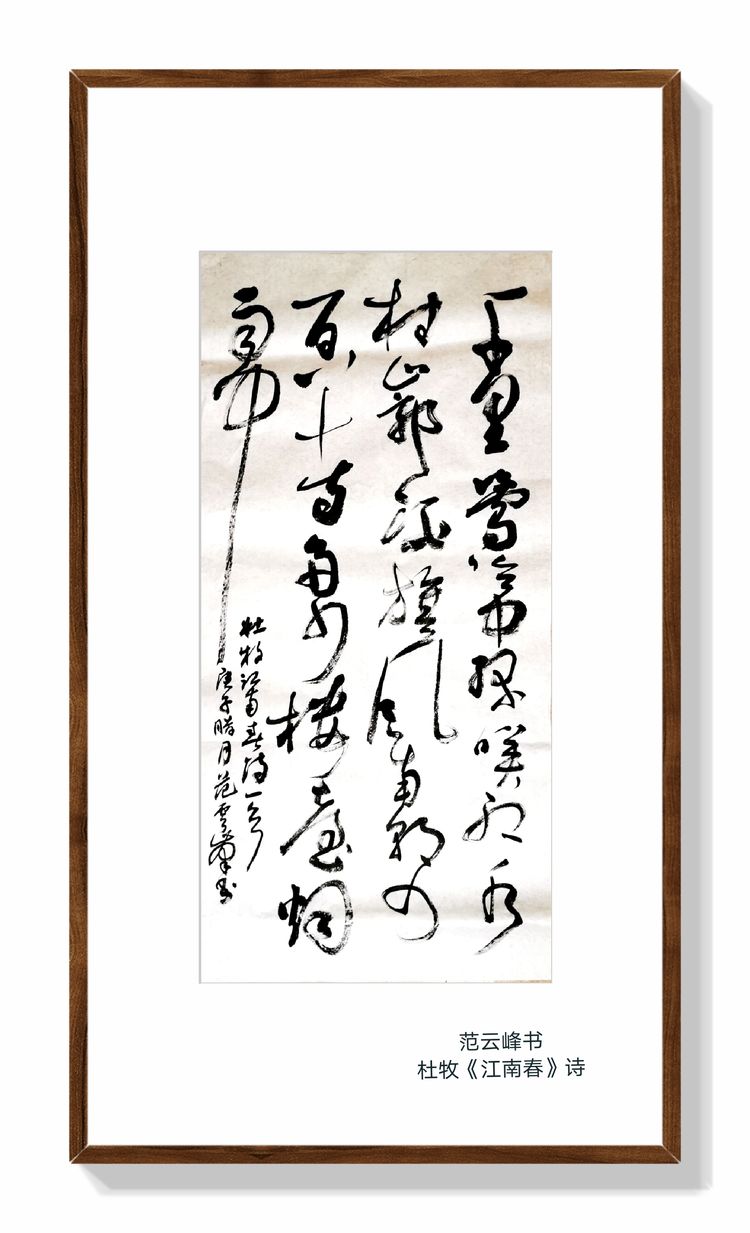 千里鶯啼綠映紅水
村山郭酒旗風南朝四
百八十寺多少樓臺烟
雨中
杜牧江南春詩一首
庚子腊月范雲峯書
范云峰书
杜牧《江南春》诗